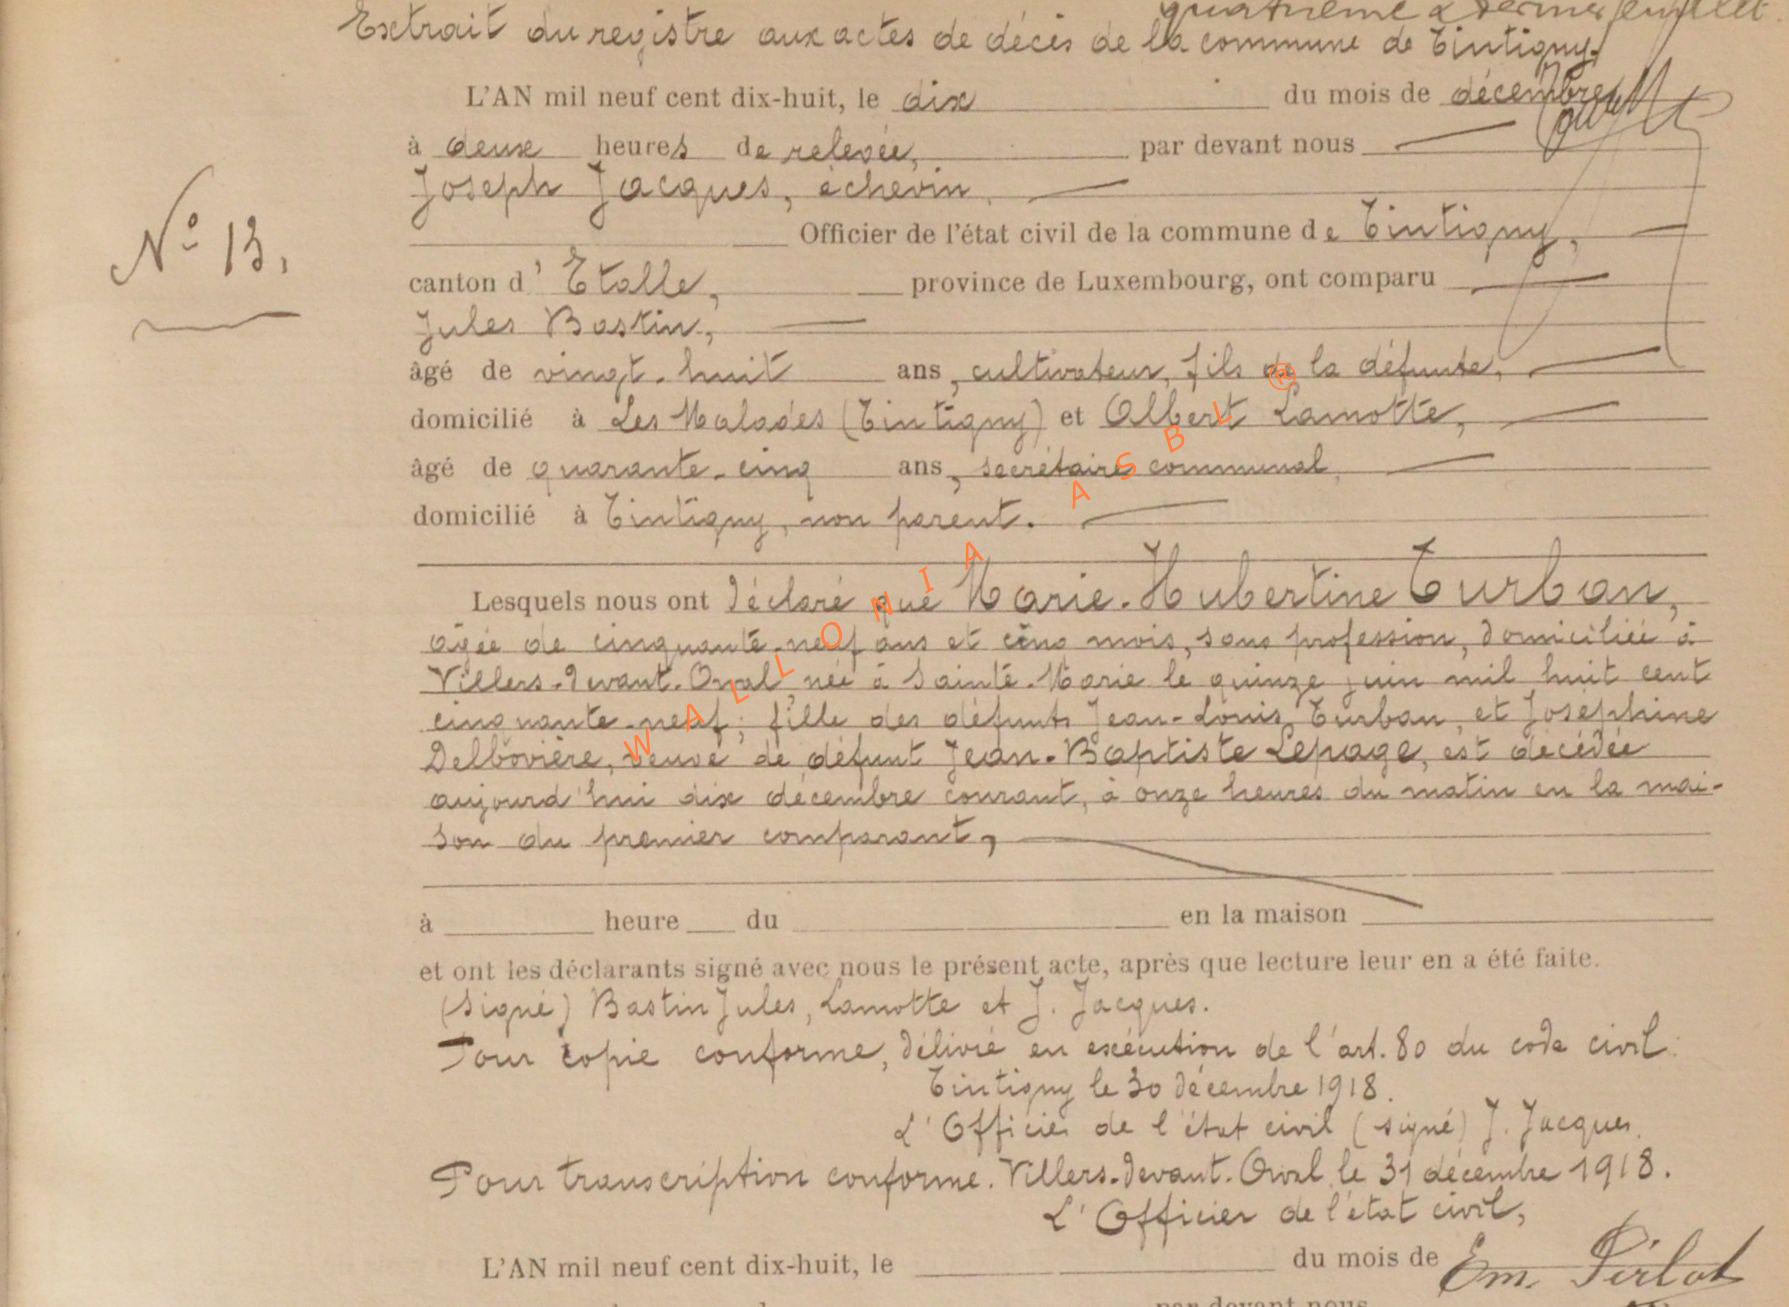 quatrième & dernier feuillet.
Extrait du registre aux actes de décès de la commune de Tintigny.
L'AN mil neuf cent dix-huit, le dix du mois de décembre,
à deux heures de relevée, par devant nous
Joseph Jacques, échevin,
Officier de l'état civil de la commune de Tintigny,
N° 13.
canton d' Etalle, province de Luxembourg, ont comparu
Jules Bastin,
âgé de vingt-huit ans, cultivateur, fils de la défunte,
domicilié à Les Malades (Tintigny) et Albert Lamotte,
âgé de quarante-cinq ans, secrétaire communal,
domicilié à Tintigny, non parent.
WALLONIA ASBL ®
Lesquels nous ont déclaré que Marie-Hubertine Turban,
agée de cinquante-neuf ans et cinq mois, sans profession, domiciliée à
Villers-devant-Orval, née à Sainte-Marie le quinze juin mil huit cent
cinquante-neuf; fille des défunts Jean-Louis Turban, et Joséphine
Delbovière, veuve de défunt Jean-Baptiste Lepage, est décédée
aujourd'hui dix décembre courant, à onze heures du matin en la mai-
son du premier comparant,
à heure du en la maison
et ont les déclarants signé avec nous le présent acte, après que lecture leur en a été faite.
(signé) Bastin Jules, Lamotte et J. Jacques.
Pour copie conforme, délivré en exécution de l'art. 80 du code civil.
Tintigny le 30 décembre 1918.
L'Officier de l'état civil (signé) J. Jacques.
Pour transcription conforme. Villers-devant-Orval le 31 décembre 1918.
L'Officier de l'état civil,
L'AN mil neuf cent dix-huit, le du mois de
Em. Pirlot
par devant nous